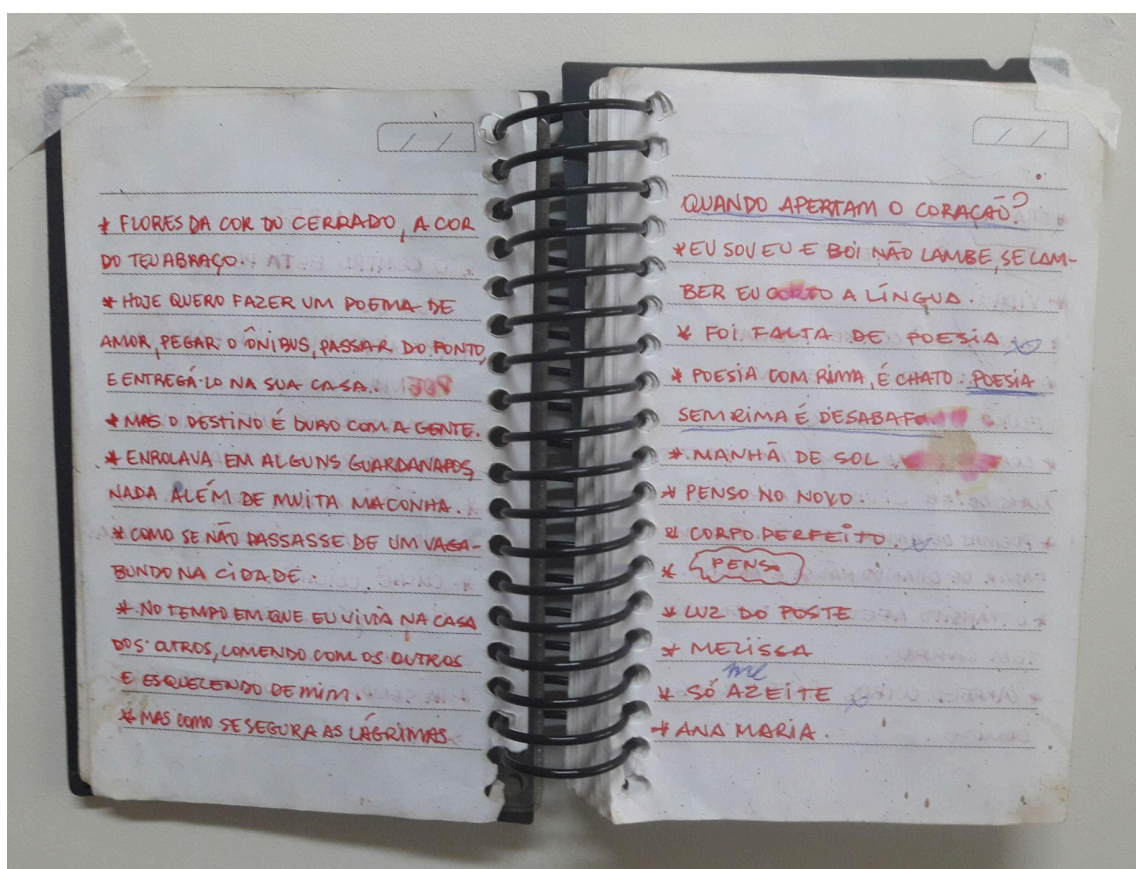 * FLORES DA COR DO CERRADO, A COR
DO TEU ABRAÇO.
* HOJE QUERO FAZER UM POEMA DE
AMOR, PEGAR O ÔNIBUS, PASSAR DO PONTO,
E ENTREGÁ-LO NA SUA CASA.
* MAS O DESTINO É DURO COM A GENTE.
* ENROLAVA EM ALGUNS GUARDANAPOS,
NADA ALÉM DE MUITA MACONHA.
* COMO SE NÃO PASSASSE DE UM VAGA-
BUNDO NA CIDADE.
* NO TEMPO EM QUE EU VIVIA NA CASA
DOS OUTROS, COMENDO COM OS OUTROS
E ESQUECENDO DE MIM.
* MAS COMO SE SEGURA AS LÁGRIMAS
QUANDO APERTAM O CORAÇÃO?
* EU SOU EU E BOI NÃO LAMBE, SE LAM-
BER EU CORTO A LÍNGUA.
* FOI FALTA DE POESIA
* POESIA COM RIMA, É CHATO. POESIA
SEM RIMA É DESABAFO
* MANHÃ DE SOL.
* PENSO NO NOVO.
* CORPO PERFEITO.
* PENSO
* LUZ DO POSTE
* MELISSA
me
* SÓ AZEITE
* ANA MARIA.